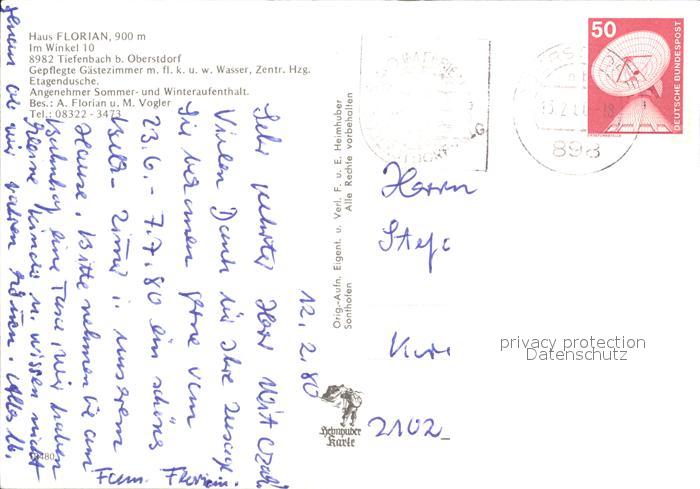 Haus FLORIAN, 900 m
Im Winkel 10
8982 Tiefenbach b. Oberstdorf
Gepflegte Gästezimmer m. fl. k. u. w. Wasser, Zentr. Hzg.
Etagendusche.
Angenehmer Sommer- und Winteraufenthalt.
Bes.: A. Florian u. M. Vogler
Tel.: 08322 - 3473
12. 2. 80
Sehr geehrter Herr
Vielen Dank für Ihre Zusage.
Sie bekommen gerne vom
23.6. - 7.7.80 ein schönes
Bett- Zimmer in unserem
Hause. Bitte nehmen Sie am
Bahnhof eine Taxe, wir haben
kleine Kinder u. wissen nicht
ob wir fahren können. Alles lb.
Fam. Florian.
Orig.-Aufn. Eigent. u. Verl. F. u. E. Heimhuber
Sonthofen Alle Rechte vorbehalten
50
DEUTSCHE BUNDESPOST
898
Herrn
2102
Heimhuber
Karte
privacy protection
Datenschutz